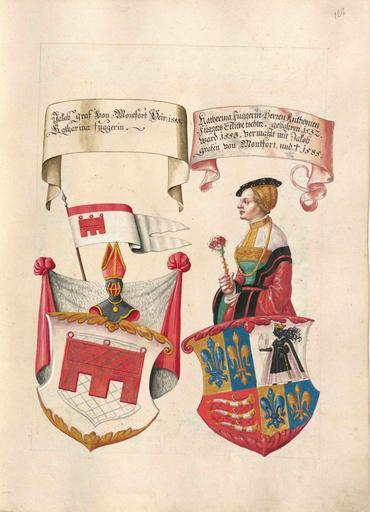 Jacob graf von Montfort Heir: 1553
Katharina Fuggerin.
Katherina Fuggerin Herren Anthonien
Fuggers Eeliche tochter, gebohren 1532.
ward 1553. vermählt mit Jakob
grafen von Montfort. und † 1585.